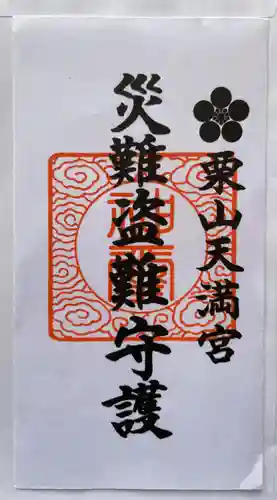 粟山天満宮
災難盗難守護